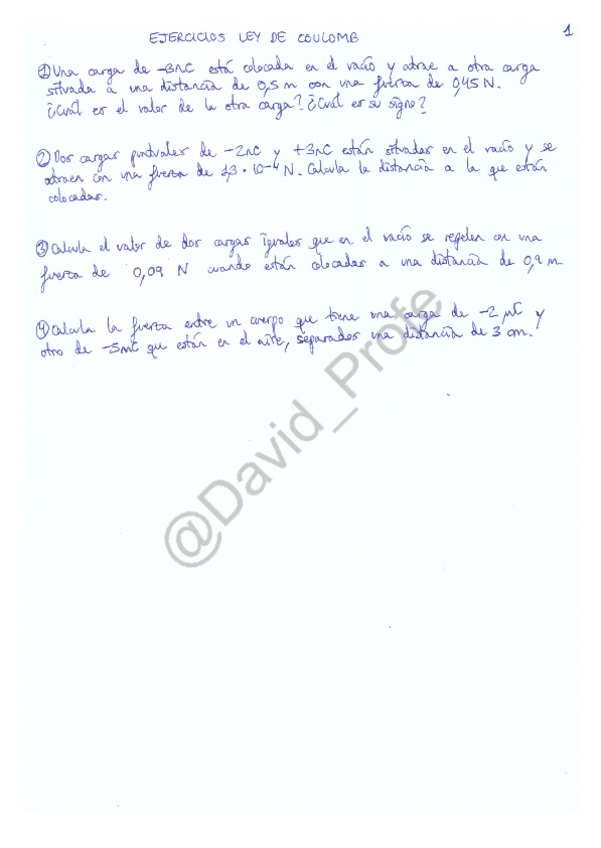 EJERCICIOS LEY DE COULOMB
1
① Una carga de -3nC está colocada en el vacío y atrae a otra carga
situada a una distancia de 0,5 m con una fuerza de 0,45 N.
¿Cuál es el valor de la otra carga? ¿Cuál es su signo?
② Dos cargas puntuales de -2nC y +3nC están situadas en el vacío y se
atraen con una fuerza de 2,3·10⁻⁴ N. Calcula la distancia a la que están
colocadas.
③ Calcula el valor de dos cargas iguales que en el vacío se repelen con una
fuerza de 0,09 N cuando están colocadas a una distancia de 0,9 m
④ Calcula la fuerza entre un cuerpo que tiene una carga de -2 μC y
otro de -5mC que están en el aire, separados una distancia de 3 cm.
@David_Profe